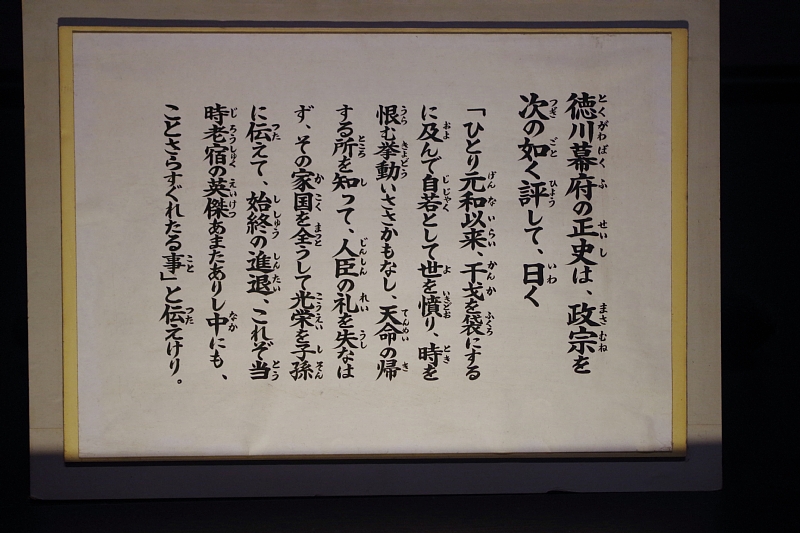 徳川幕府の正史は、政宗を
次の如く評して、曰く
「ひとり元和以来、干戈を袋にする
に及んで自若として世を憤り、時を
恨む挙動いささかもなし、天命の帰
する所を知って、人臣の礼を失なは
ず、その家国を全うして光栄を子孫
に伝えて、始終の進退、これぞ当
時老宿の英傑あまたありし中にも、
ことさらすぐれたる事」と伝えけり。